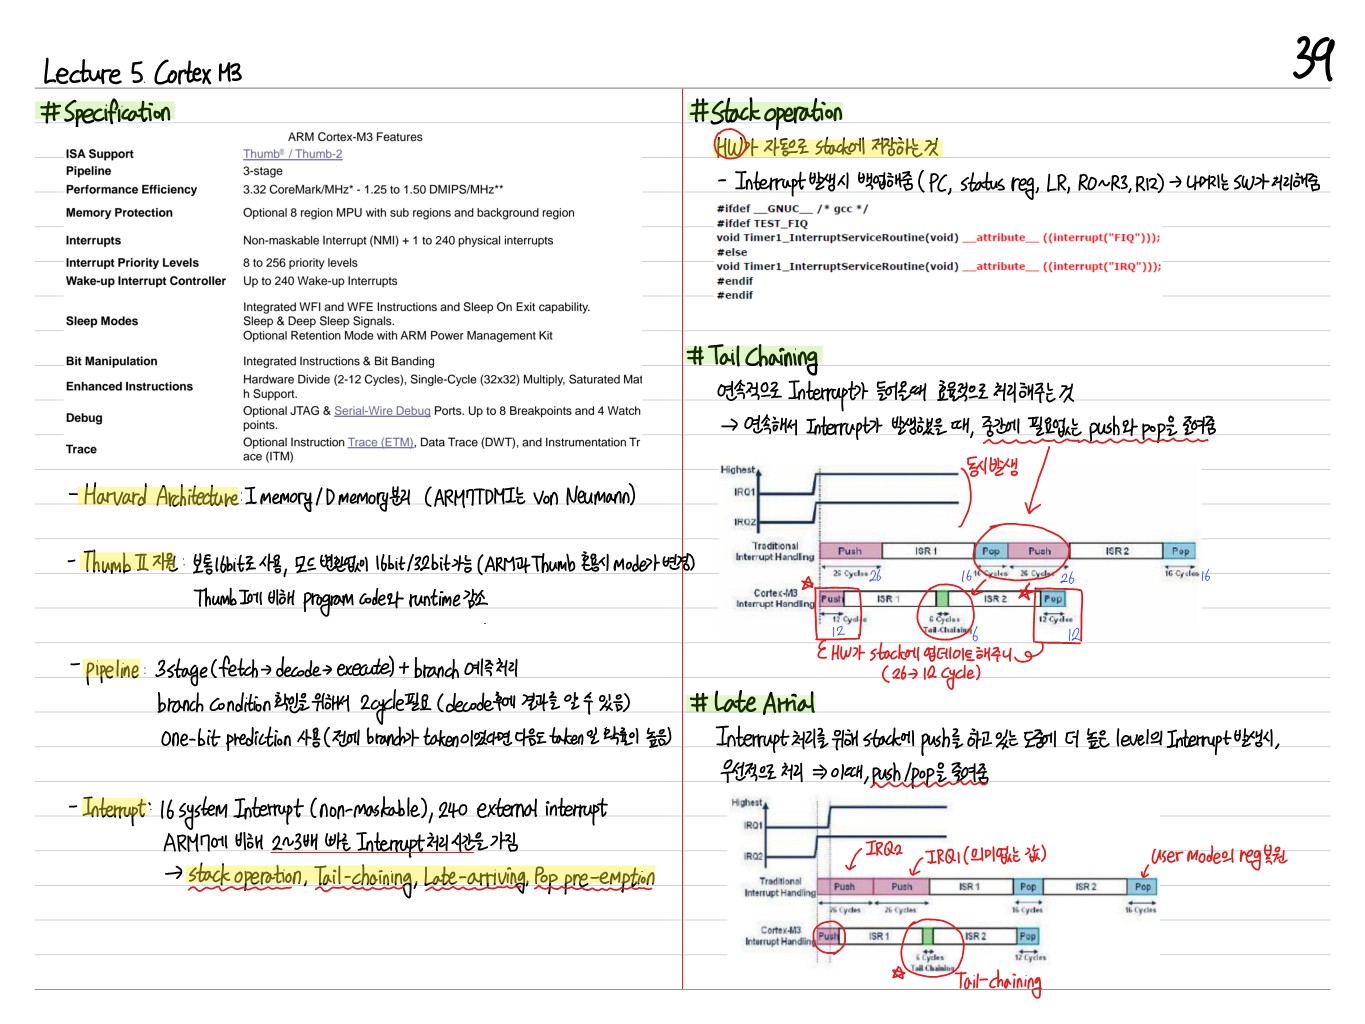 39
Lecture 5. Cortex M3
# Specification
ARM Cortex-M3 Features
ISA Support Thumb® / Thumb-2
Pipeline 3-stage
Performance Efficiency 3.32 CoreMark/MHz* - 1.25 to 1.50 DMIPS/MHz**
Memory Protection Optional 8 region MPU with sub regions and background region
Interrupts Non-maskable Interrupt (NMI) + 1 to 240 physical interrupts
Interrupt Priority Levels 8 to 256 priority levels
Wake-up Interrupt Controller Up to 240 Wake-up Interrupts
Sleep Modes Integrated WFI and WFE Instructions and Sleep On Exit capability.
Sleep & Deep Sleep Signals.
Optional Retention Mode with ARM Power Management Kit
Bit Manipulation Integrated Instructions & Bit Banding
Enhanced Instructions Hardware Divide (2-12 Cycles), Single-Cycle (32x32) Multiply, Saturated Mat
h Support.
Debug Optional JTAG & Serial-Wire Debug Ports. Up to 8 Breakpoints and 4 Watch
points.
Trace Optional Instruction Trace (ETM), Data Trace (DWT), and Instrumentation Tr
ace (ITM)
- Harvard Architecture: I memory/D memory분리 (ARM7TDMI는 Von Neumann)
- Thumb II 지원: 보통 16bit로 사용, 모드 변환없이 16bit/32bit가능 (ARM과 Thumb 혼용시 Mode가 변경)
Thumb I에 비해 program code와 runtime 감소
- pipeline: 3stage(fetch→decode→execute) + branch 예측처리
branch condition 확인을 위해서 2cycle필요 (decode후에 결과를 알 수 있음)
one-bit prediction 사용(전에 branch가 taken이었다면 다음도 taken일 확률이 높음)
- Interrupt: 16 system Interrupt (non-maskable), 240 external interrupt
ARM7에 비해 2~3배 빠른 Interrupt처리 시간을 가짐
→ stack operation, Tail-chaining, Late-arriving, Pop pre-emption
# Stack operation
HW가 자동으로 stack에 저장하는 것
- Interrupt 발생시 백업해줌 (PC, status reg, LR, R0~R3, R12) → 나머지는 SW가 처리해줌
#ifdef __GNUC__ /* gcc */
#ifdef TEST_FIQ
void Timer1_InterruptServiceRoutine(void) __attribute__ ((interrupt("FIQ")));
#else
void Timer1_InterruptServiceRoutine(void) __attribute__ ((interrupt("IRQ")));
#endif
#endif
# Tail Chaining
연속적으로 Interrupt가 들어올때 효율적으로 처리해주는 것
→ 연속해서 Interrupt가 발생했을 때, 중간에 필요없는 push와 pop을 줄여줌
Highest
IRQ1
IRQ2
동시발생
Traditional Interrupt Handling Push ISR 1 Pop Push ISR 2 Pop
26 Cycles 26 16 16 Cycles 26 Cycles 26 16 Cycles 16
Cortex-M3 Interrupt Handling Push ISR 1 ISR 2 Pop
12 Cycles 6 Cycles 12 Cycles
12 Tail-Chaining 6 12
HW가 stack에 업데이트해주니
(26→12 Cycle)
# Late Arrial
Interrupt 처리를 위해 stack에 push를 하고 있는 도중에 더 높은 level의 Interrupt 발생시,
우선적으로 처리 ⇒ 이때, push/pop을 줄여줌
Highest
IRQ1
IRQ2
IRQ2 IRQ1 (의미없는 값) User mode의 reg복원
Traditional Interrupt Handling Push Push ISR 1 Pop ISR 2 Pop
26 Cycles 26 Cycles 16 Cycles 16 Cycles
Cortex-M3 Interrupt Handling Push ISR 1 ISR 2 Pop
6 Cycles 12 Cycles
Tail Chaining
Tail-chaining